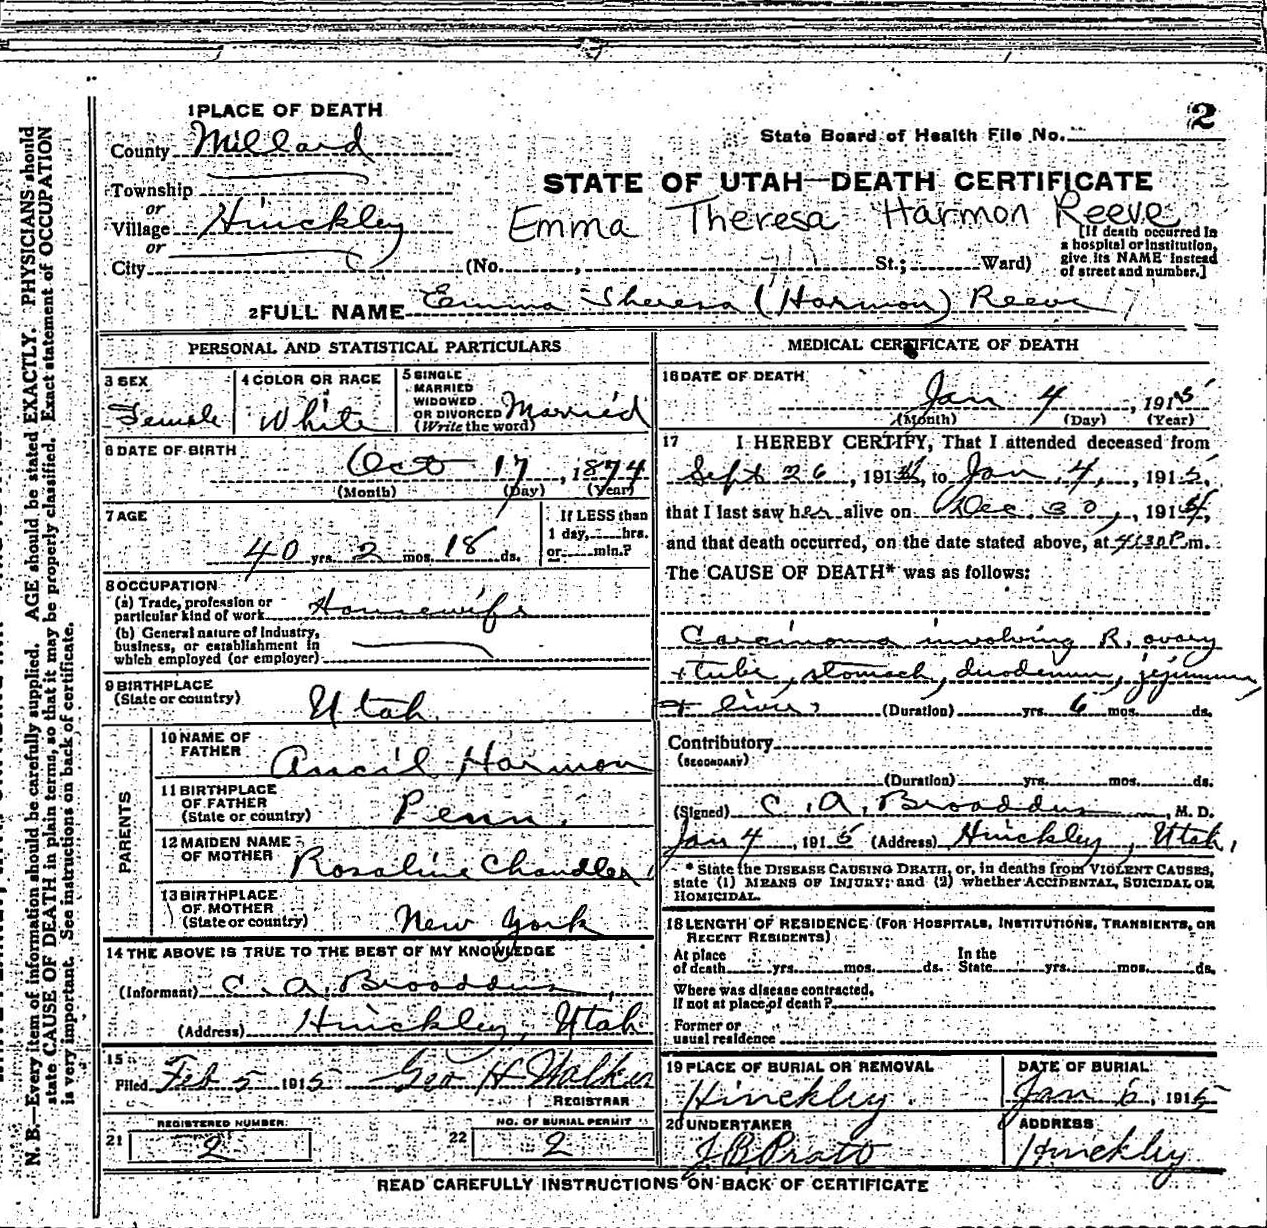 2
1 PLACE OF DEATH
State Board of Health File No.
County Millard
STATE OF UTAH—DEATH CERTIFICATE
Township
or
Village Hinckley
Emma Theresa Harmon Reeve
or
City (No. , St.; Ward)
[If death occurred in
a hospital or institution,
give its NAME instead
of street and number.]
2 FULL NAME Emma Theresa (Harmon) Reeve
PERSONAL AND STATISTICAL PARTICULARS
3 SEX
Female
4 COLOR OR RACE
White
5 SINGLE
MARRIED
WIDOWED
OR DIVORCED Married
(Write the word)
6 DATE OF BIRTH
Oct 17, 1874
(Month) (Day) (Year)
7 AGE
40 yrs. 2 mos. 18 ds.
If LESS than
1 day, hrs.
or min.?
8 OCCUPATION
(a) Trade, profession or
particular kind of work Housewife
(b) General nature of Industry,
business, or establishment in
which employed (or employer)
9 BIRTHPLACE
(State or country) Utah
PARENTS
10 NAME OF
FATHER Ancil Harmon
11 BIRTHPLACE
OF FATHER
(State or country) Penn.
12 MAIDEN NAME
OF MOTHER Rosaline Chandler
13 BIRTHPLACE
OF MOTHER
(State or country) New York
14 THE ABOVE IS TRUE TO THE BEST OF MY KNOWLEDGE
(Informant) C. A. Broaddus
(Address) Hinckley, Utah
15
Filed Feb 5 1915 Geo H Walker
REGISTRAR
REGISTERED NUMBER
21 2
NO. OF BURIAL PERMIT
22 2
MEDICAL CERTIFICATE OF DEATH
16 DATE OF DEATH
Jan 4, 1915
(Month) (Day) (Year)
17 I HEREBY CERTIFY, That I attended deceased from
Sept 26, 1914, to Jan. 4, 1915,
that I last saw her alive on Dec. 30, 1914,
and that death occurred, on the date stated above, at 4:30 P.m.
The CAUSE OF DEATH* was as follows:
Carcinoma involving R. ovary
+ tube, stomach, duodenum, jejunum,
+ liver, (Duration) yrs. 6 mos. ds.
Contributory
(SECONDARY)
(Duration) yrs. mos. ds.
(Signed) C. A. Broaddus, M. D.
Jan 4, 1915 (Address) Hinckley, Utah,
* State the DISEASE CAUSING DEATH, or, in deaths from VIOLENT CAUSES,
state (1) MEANS OF INJURY; and (2) whether ACCIDENTAL, SUICIDAL OR
HOMICIDAL.
18 LENGTH OF RESIDENCE (FOR HOSPITALS, INSTITUTIONS, TRANSIENTS, OR
RECENT RESIDENTS)
At place of death yrs. mos. ds. In the State yrs. mos. ds.
Where was disease contracted,
If not at place of death?
Former or
usual residence
19 PLACE OF BURIAL OR REMOVAL
Hinckley.
DATE OF BURIAL
Jan 6, 1915
20 UNDERTAKER
ADDRESS
Hinckley
READ CAREFULLY INSTRUCTIONS ON BACK OF CERTIFICATE
N. B.—Every item of information should be carefully supplied. AGE should be stated EXACTLY. PHYSICIANS should
state CAUSE OF DEATH in plain terms, so that it may be properly classified. Exact statement of OCCUPATION
is very important. See instructions on back of certificate.